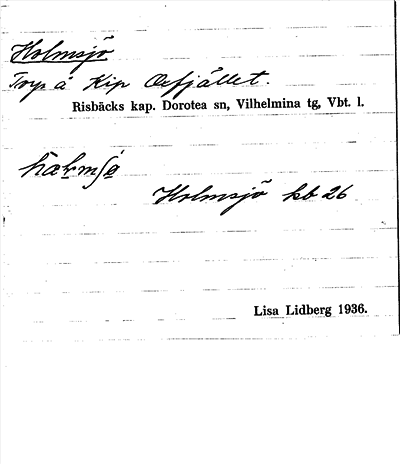 Holmsjö
Torp å Kip Oxfjället.
Risbäcks kap. Dorotea sn, Vilhelmina tg, Vbt. l.
Holmsjö kb 26
Lisa Lidberg 1936.